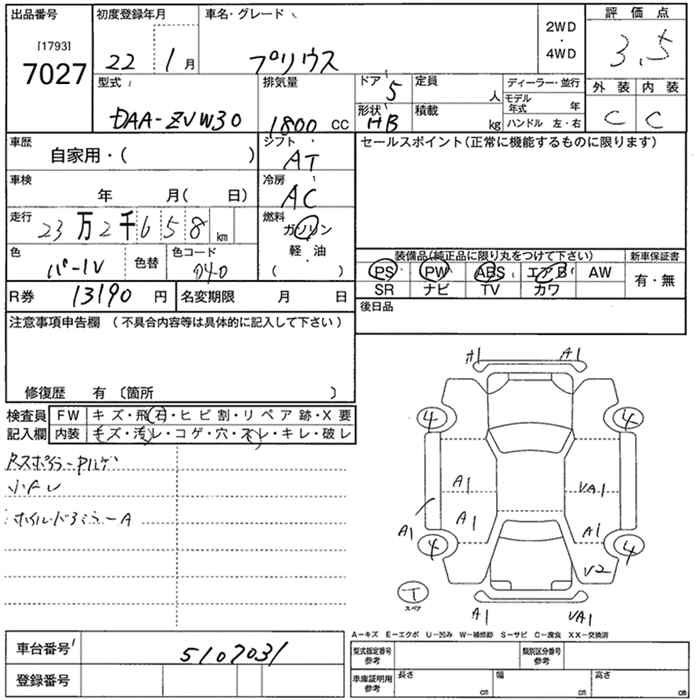 出品番号 初度登録年月 車名・グレード 2WD ・ 4WD 評価点
[1793]
7027 22 1月 プリウス 3.5
型式 排気量 ドア 5 定員 人 ディーラー・並行 外装 内装
DAA-ZVW30 1800 cc 形状 HB 積載 kg モデル年式 年 C C
ハンドル 左・右
車歴 自家用・( ) シフト AT セールスポイント(正常に機能するものに限ります)
車検 年 月( 日) 冷房 AC
走行 23万2千658 km 燃料 ガソリン
軽・油
( )
色 パール 色替 色コード 040
装備品(純正品に限り丸をつけて下さい) 新車保証書
PS PW ABS エアB AW 有・無
SR ナビ TV カワ
R券 13190 円 名変期限 月 日 後日品
注意事項申告欄 (不具合内容等は具体的に記入して下さい)
修復歴 有 〔箇所 〕
検査員記入欄 FW キズ・飛石・ヒビ割・リペア跡・X要
内装 キズ・汚レ・コゲ・穴・スレ・キレ・破レ
ホイル・ドアミラーA
A1 A1
4 4
A1 VA1
A1 A1 A1
4 4
V2
T
スペア
A1 VA1
A-キズ E-エクボ U-凹み W-補修跡 S-サビ C-腐食 XX-交換済
車台番号 5107031
登録番号
型式指定番号 参考 類別区分番号 参考
車庫証明用 参考 長さ cm 幅 cm 高さ cm